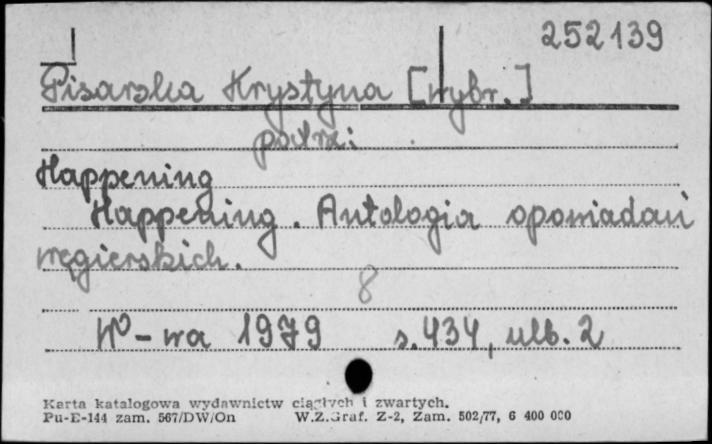 252139
Pisarska Krystyna [wybr.]
patrz:
Happening
Happening. Antologia opowiadań
węgierskich.
8
W-wa 1979 s.434, ulb. 2
Karta katalogowa wydawnictw ciągłych i zwartych.
Pu-E-144 zam. 567/DW/On W.Z.Graf. Z-2, Zam. 502/77, 6 400 000